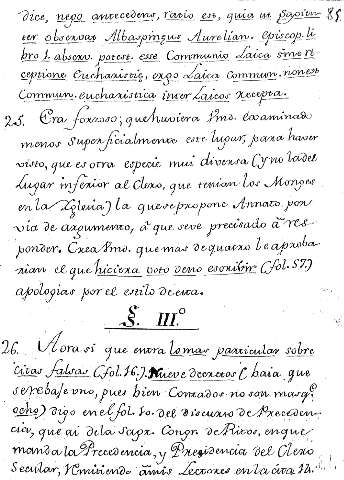 dice, nego antecedens, ratio est, quia ut sapien- 85
ter observat Albaspinęus Aurelian. episcop. li
bro 1. observ. potest esse Communio Laica sine re
ceptione Eucharistię, ergo Laica Commun. non est
Commun. eucharistica inter Laicos recepta.
25. Era forzoso, que huviera Vmd. examinado
menos superficialmente este lugar, para haver
visto, que es otra especie mui diversa (y no la del
Lugar inferior al Clero, que tenian los Monges
en la Yglesia) la que se propone Annato por
via de argumento, à que se ve precisado à res
ponder. Crea Vmd. que mas de quatro le aproba-
rian el que hiciera voto de no escribir (fol. 57.)
apologias por el estilo de esta.
§. III.º
26. Aora si que entra lo mas particular sobre
citas falsas (fol. 16.). Nueve decretos (haia que
se rebaje uno, pues bien Contados no son mas q.e
ocho) digo en el fol. 10. del discurso de Preceden-
cia, que ai de la Sagr. Congn. de Ritos, en que
manda la Precedencia, y Presidencia del Clero
Secular, Remitiendo à mis Lectores en la cita 14.